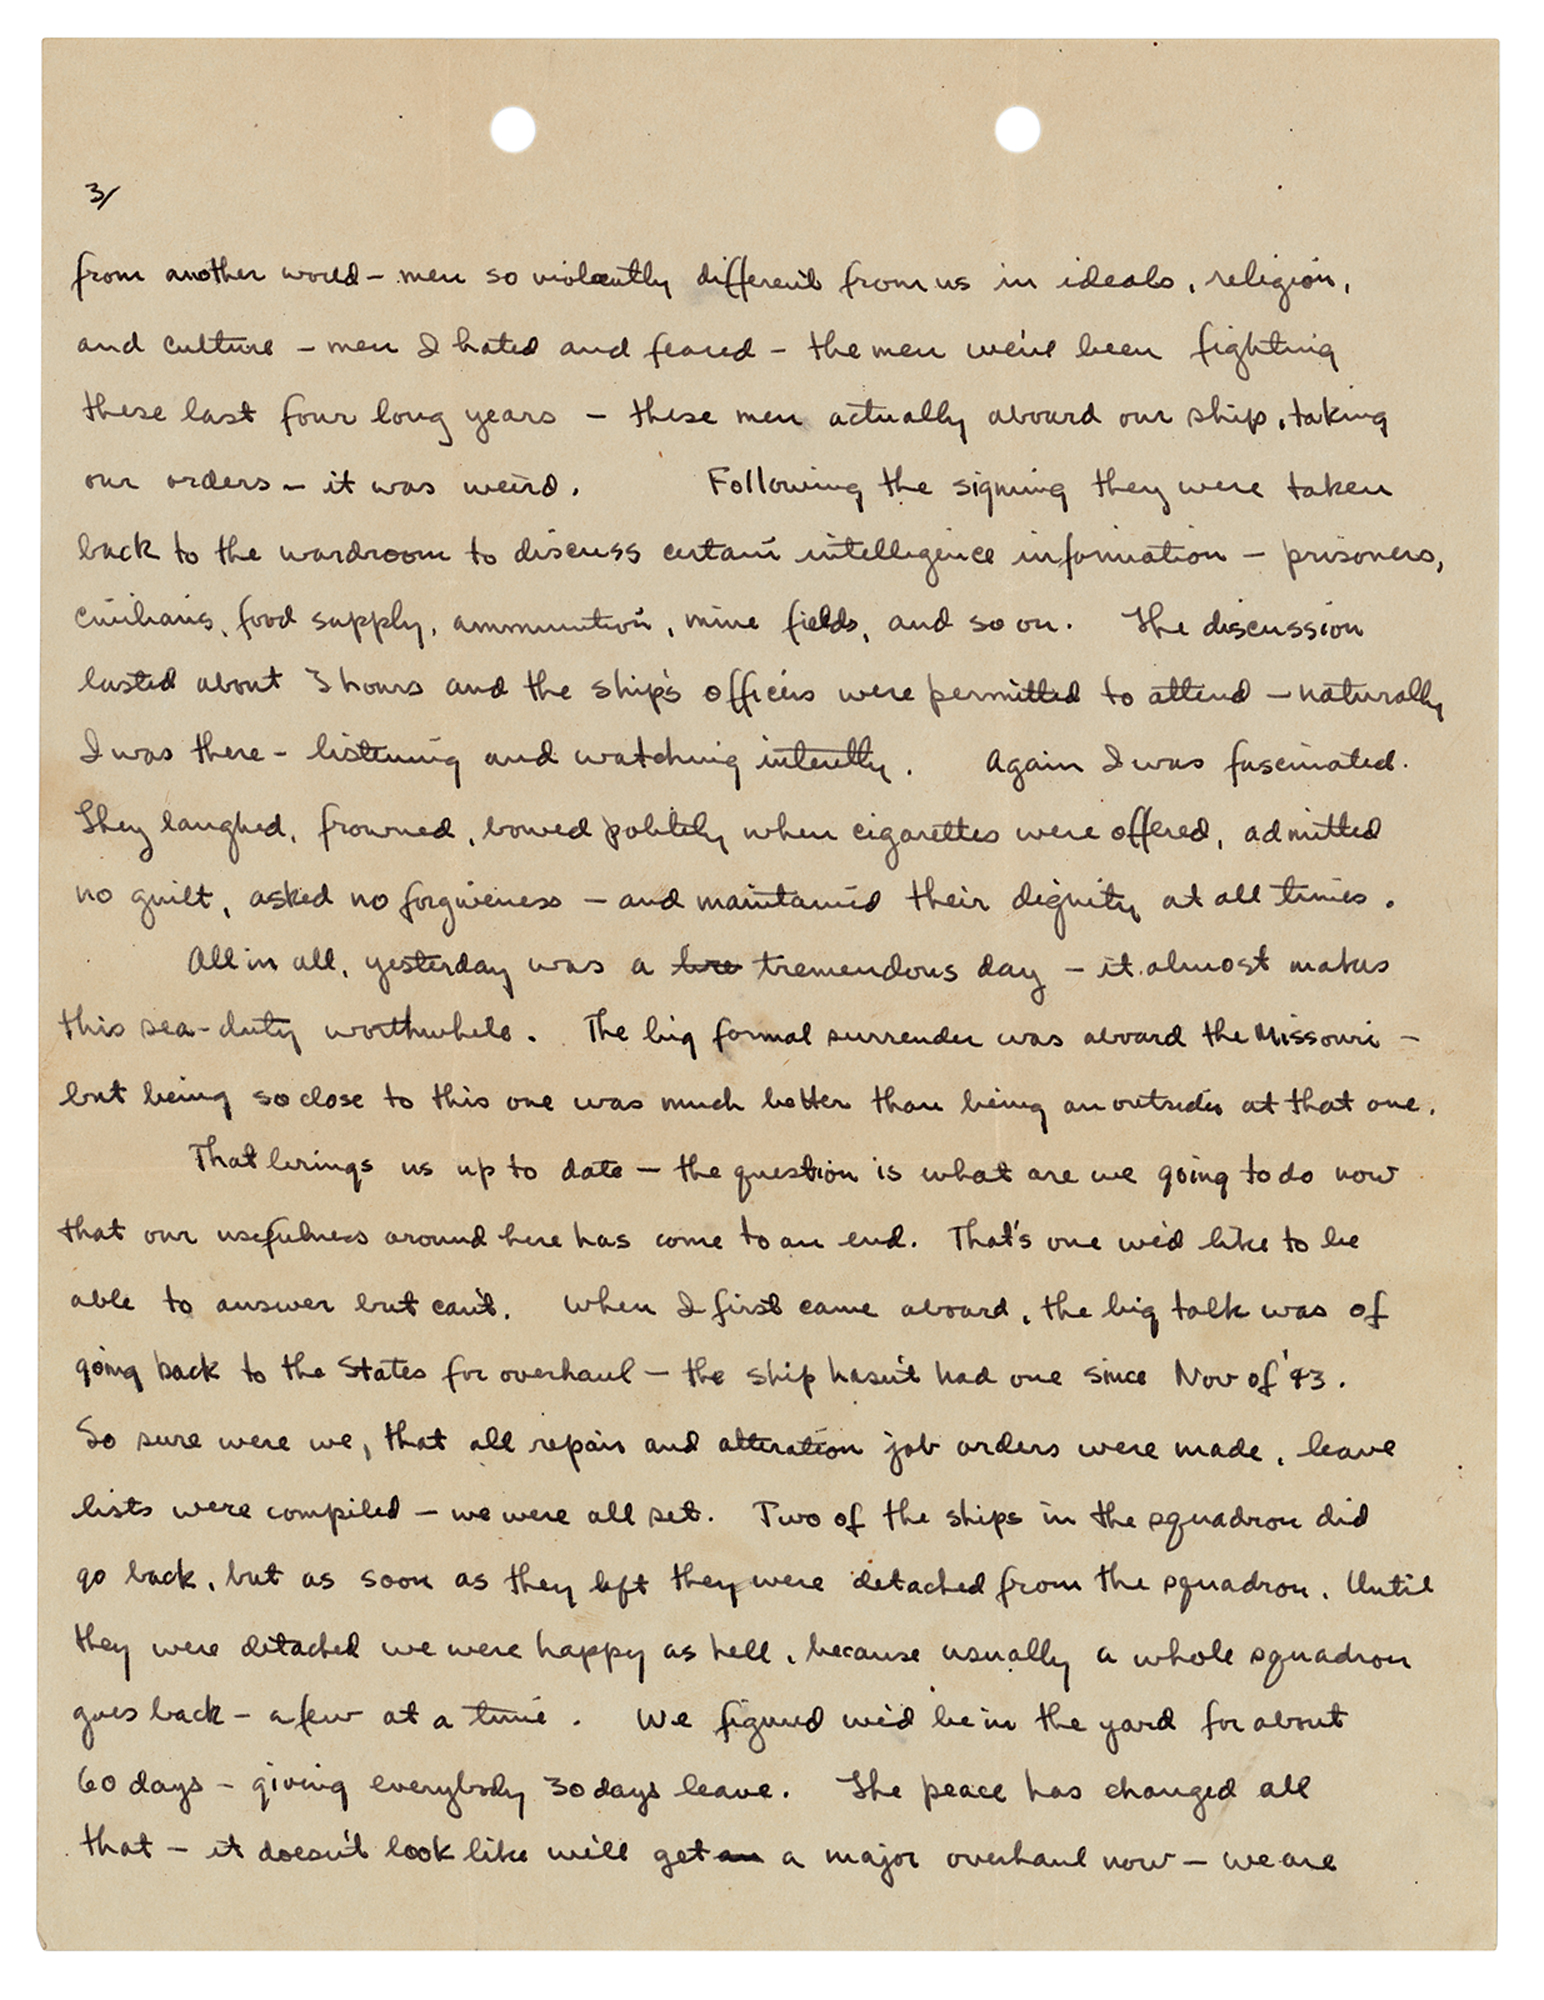 3/
from another world - men so violently different from us in ideals, religion,
and culture - men I hated and feared - the men we've been fighting
these last four long years - these men actually aboard our ship, taking
our orders - it was weird. Following the signing they were taken
back to the wardroom to discuss certain intelligence information - prisoners,
civilians, food supply, ammunition, mine fields, and so on. The discussion
lasted about 3 hours and the ship's officers were permitted to attend - naturally
I was there - listening and watching intently. Again I was fascinated.
They laughed, frowned, bowed politely when cigarettes were offered, admitted
no guilt, asked no forgiveness - and maintained their dignity at all times.
All in all, yesterday was a tremendous day - it almost makes
this sea-duty worthwhile. The big formal surrender was aboard the Missouri -
but being so close to this one was much better than being an outsider at that one.
That brings us up to date - the question is what are we going to do now
that our usefulness around here has come to an end. That's one we'd like to be
able to answer but can't. When I first came aboard, the big talk was of
going back to the States for overhaul - the ship hasn't had one since Nov of '43.
So sure were we, that all repair and alteration job orders were made, leave
lists were compiled - we were all set. Two of the ships in the squadron did
go back, but as soon as they left they were detached from the squadron. Until
they were detached we were happy as hell, because usually a whole squadron
goes back - a few at a time. We figured we'd be in the yard for about
60 days - giving everybody 30 days leave. The peace has changed all
that - it doesn't look like we'll get an a major overhaul now - we are